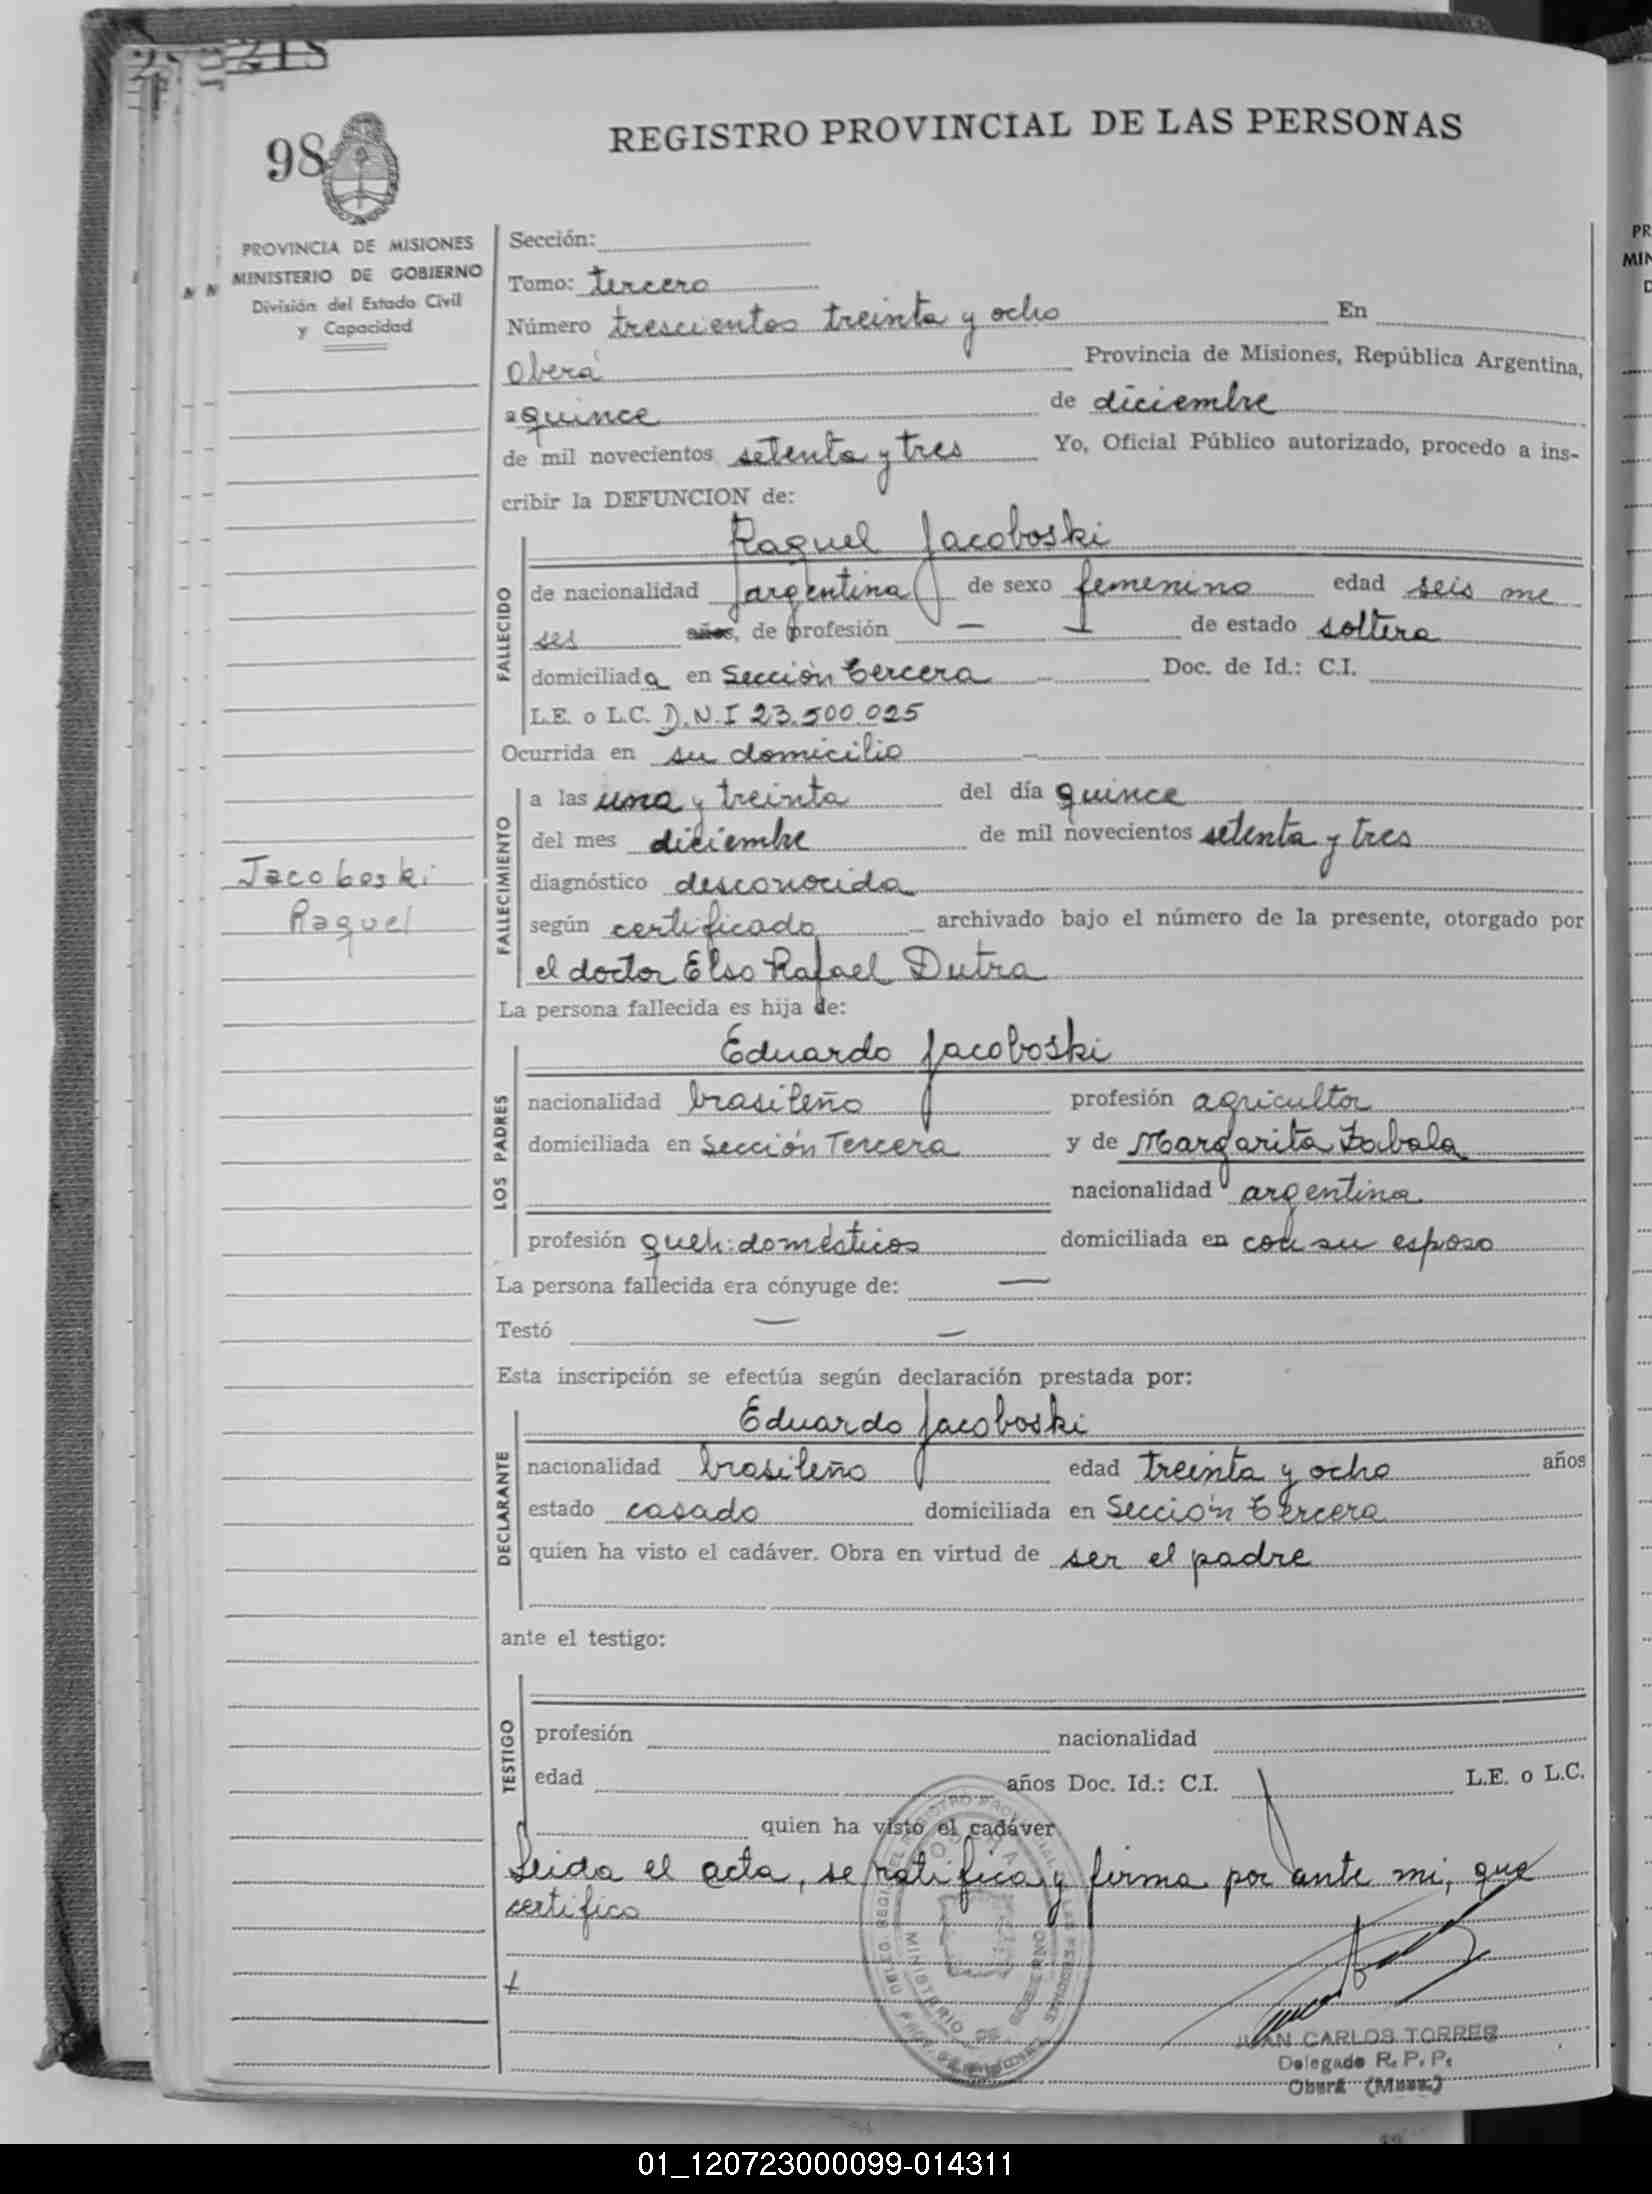 218
98
REGISTRO PROVINCIAL DE LAS PERSONAS
PROVINCIA DE MISIONES
MINISTERIO DE GOBIERNO
División del Estado Civil
y Capacidad
Sección:
Tomo: tercero
Número trescientos treinta y ocho En
Oberá Provincia de Misiones, República Argentina,
a quince de diciembre
de mil novecientos setenta y tres Yo, Oficial Público autorizado, procedo a ins-
cribir la DEFUNCION de:
Raquel Jacoboski
FALLECIDO
de nacionalidad argentina de sexo femenino edad seis me
ses años, de profesión — — de estado soltera
domiciliada en Sección Tercera Doc. de Id.: C.I.
L.E. o L.C. D.N.I 23.500.025
Ocurrida en su domicilio
FALLECIMIENTO
a las una y treinta del día quince
del mes diciembre de mil novecientos setenta y tres
diagnóstico desconocida
según certificado archivado bajo el número de la presente, otorgado por
el doctor Elso Rafael Dutra
Jacoboski
Raquel
La persona fallecida es hija de:
Eduardo Jacoboski
LOS PADRES
nacionalidad brasileño profesión agricultor
domiciliada en Sección Tercera y de Margarita Zabala
nacionalidad argentina
profesión queh: domésticos domiciliada en con su esposo
La persona fallecida era cónyuge de: —
Testó — —
Esta inscripción se efectúa según declaración prestada por:
Eduardo Jacoboski
DECLARANTE
nacionalidad brasileño edad treinta y ocho años
estado casado domiciliada en Sección Tercera
quien ha visto el cadáver. Obra en virtud de ser el padre
ante el testigo:
TESTIGO
profesión nacionalidad
edad años Doc. Id.: C.I. L.E. o L.C.
quien ha visto el cadáver
Leida el acta, se ratifica y firma por ante mi, que
certifico
JUAN CARLOS TORRES
Delegado R. P. P.
Oberá (Mnes.)
01_120723000099-014311